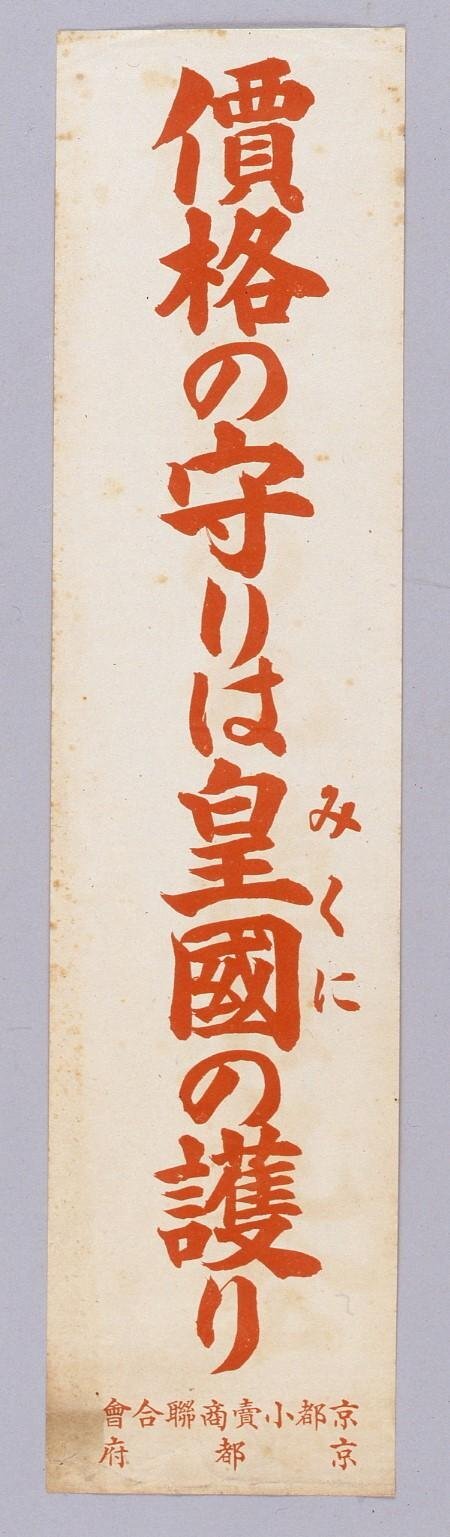 價格の守りは皇國の護り
みくに
京都小賣商聯合會
京都府